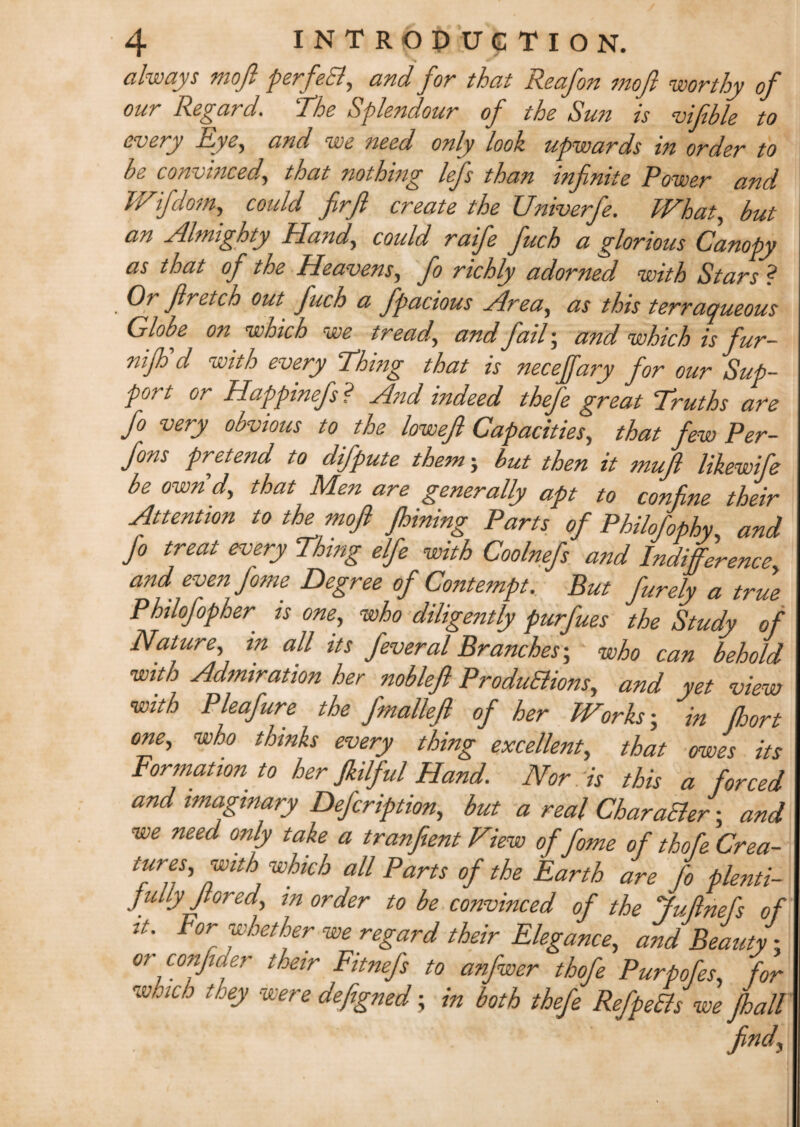 4 INTRODUCTION.
always moſt perfect, and for that Reaſon moſt worthy of
our Regard. The Splendour of the Sun is viſible to
every Eye, and we need only look upwards in order to
be convinced, that nothing leſs than infinite Power and
Wiſdom, could firſt create the Univerſe. What, but
an Almighty Hand, could raiſe ſuch a glorious Canopy
as that of the Heavens, ſo richly adorned with Stars?
Or ſtretch out ſuch a ſpacious Area, as this terraqueous
Globe on which we tread, and ſail; and which is fur-
niſh'd with every Thing that is neceſſary for our Sup-
port or Happineſs? And indeed theſe great Truths are
ſo very obvious to the loweſt Capacities, that few Per-
ſons pretend to diſpute them; but then it muſt likewiſe
be own'd, that Men are generally apt to confine their
Attention to the moſt ſhining Parts of Philoſophy, and
ſo treat every Thing elſe with Coolneſs and Indifference,
and even ſome Degree of Contempt. But ſurely a true
Philoſopher is one, who diligently purſues the Study of
Nature, in all its ſeveral Branches; who can behold
with Admiration her nobleſt Productions, and yet view
with Pleaſure the ſmalleſt of her Works; in ſhort
one, who thinks every thing excellent, that owes its
Formation to her ſkilful Hand. Nor is this a forced
and imaginary Deſcription, but a real Character; and
we need only take a tranſient View of ſome of thoſe Crea-
tures, with which all Parts of the Earth are ſo plenti-
fully ſtored, in order to be convinced of the Juſtneſs of
it. For whether we regard their Elegance, and Beauty;
or conſider their Fitneſs to anſwer thoſe Purpoſes, for
which they were deſigned; in both theſe Reſpects we ſhall
find,